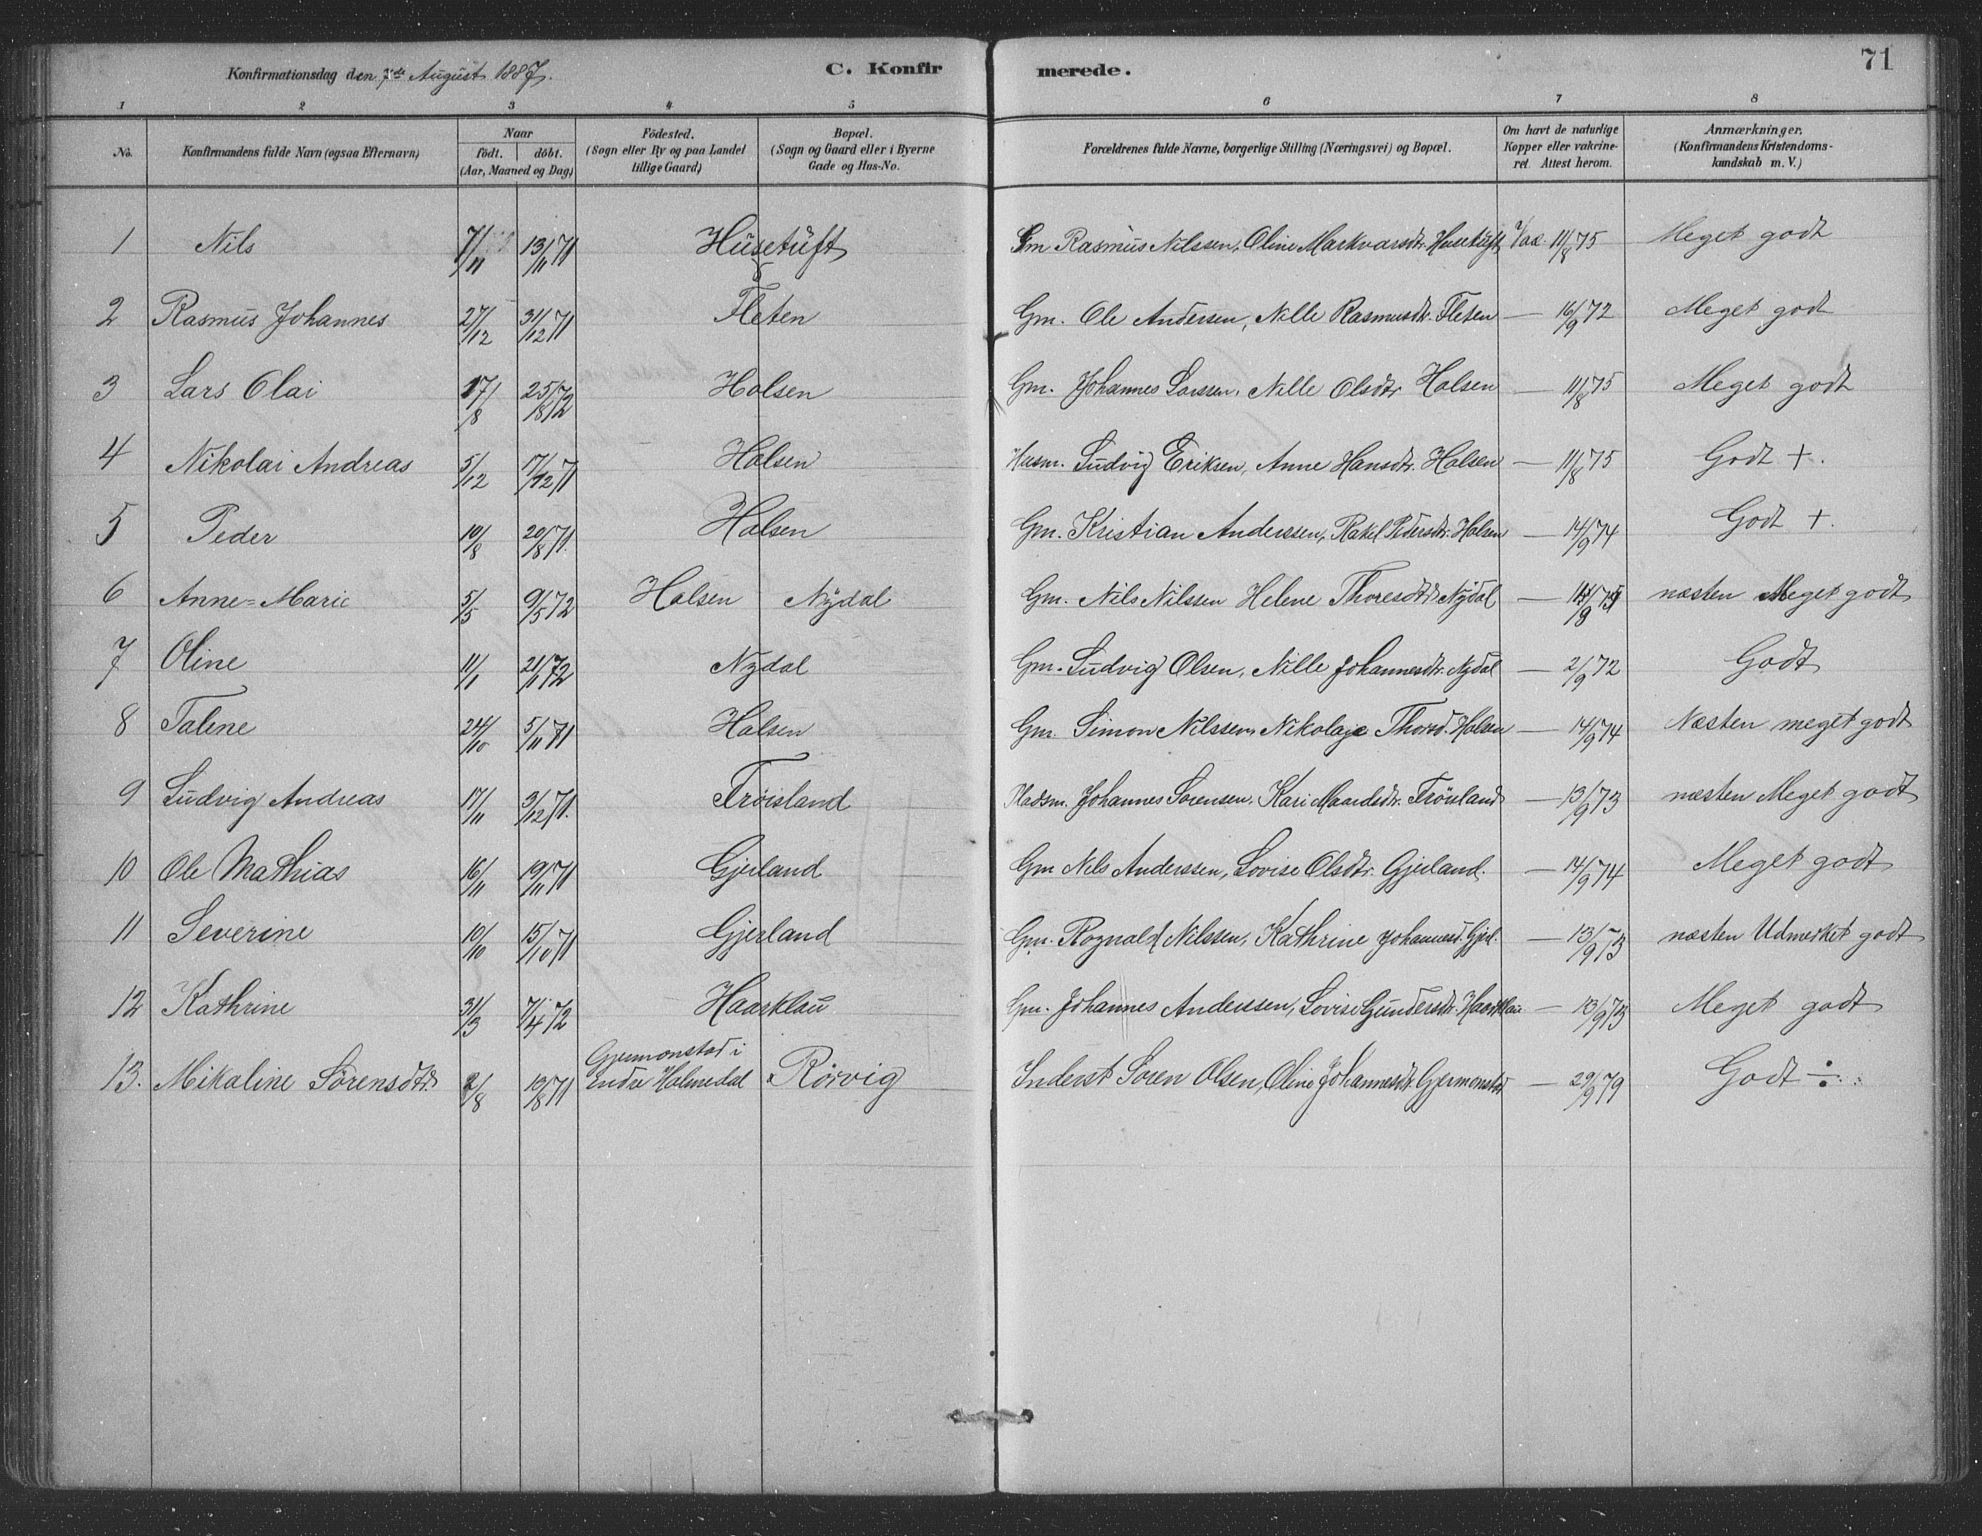 71
Konfirmationsdag den 7de August 1887. C. Konfirmerede.
1 2 3 4 5 6 7 8
No. Konfirmandens fulde Navn (ogsaa Efternavn) Naar födt. döbt. (Aar, Maaned og Dag) Födested. (Sogn eller By og paa Landet tillige Gaard) Bopæl. (Sogn og Gaard eller i Byerne Gade og Hus-No. Forældrenes fulde Navne, borgerlige Stilling (Næringsvei) og Bopæl. Om havt de naturlige Kopper eller vakcineret. Attest herom. Anmærkninger. (Konfirmandens Kristendomskundskab m. V.)
1 Nils 7/11 13/11 71 Husetuft Gm Rasmus Nilssen, Oline Markvardsdtr Husetuft Vac. 11/8 75 Meget godt
2 Rasmus Johannes 27/12 31/12 71 Fleten Gm. Ole Andersen, Nille Rasmusdtr. Fleten — 16/9 72 Meget godt
3 Lars Olai 17/8 25/8 72 Holsen Gm. Johannes Larssen, Nille Olsdtr Holsen — 11/8 75 Meget godt
4 Nikolai Andreas 5/12 17/12 71 Holsen Husm. Ludvig Eriksen, Anne Hansdtr. Holsen — 11/8 75 Godt +.
5 Peder 10/8 20/8 71. Holsen Gm. Kristian Anderssen, Rakel Pedersdtr. Holsen — 14/9 74 Godt +.
6 Anne-Marie 5/5 9/5 72 Holsen Nydal Gm. Nils Nilssen Helene Thoresdtr Nydal — næsten Meget godt
7 Oline 11/1 21/1 72 Nydal Gm. Ludvig Olsen, Nille Johannesdtr. Nydal — 2/9 72 Godt
8 Talene 24/10 5/11 71 Holsen Gm. Simon Nilssen, Nikolaje Thord. Holsen — 14/9 74 Næsten meget godt
9 Ludvig Andreas 17/11 3/12 71. Frøisland Pladsm. Johannes Sorensen, Kari Maardsdtr. Frøisland — 13/9 73 næsten Meget godt
10 Ole Mathias 16/11 19/11 71 Gjeiland Gm Nils Anderssen, Lovise Olsdtr. Gjeiland. — 14/9 74 Meget godt
11 Severine 10/10 15/10 71 Gjerland Gm. Rognald Nilssen, Kathrine Johannesd. Gjerl. — 13/9 73 næsten Udmerket godt
12 Kathrine 31/3 7/4 72 Haarklau Gm. Johannes Anderssen, Lovise Gundersdtr. Haarklau — 13/9 73 Meget godt
13. Mikaline Sörensdtr 2/8 10/8 71 Gjermonstad i Indre Holmedal Rørvig Inderst Soren Olsen, Oline Johannesdtr. Gjermonstd — 29/9 79 Godt ÷